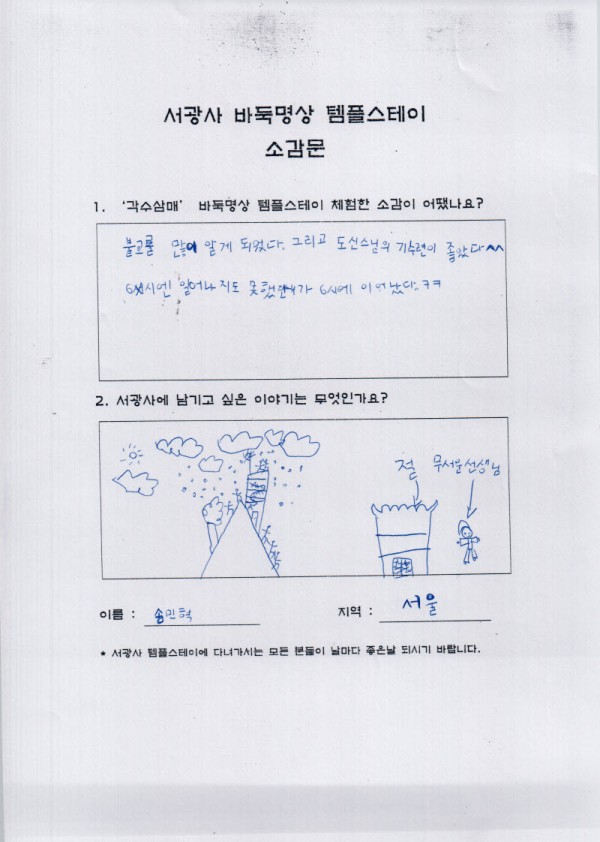 서광사 바둑명상 템플스테이
소감문
1. '각수삼매' 바둑명상 템플스테이 체험한 소감이 어땠나요?
불교를 많이 알게 되었다. 그리고 도신스님의 기수련이 좋았다^^
6시엔 일어나지도 못했던 내가 6시에 일어났다.ㅋㅋ
2. 서광사에 남기고 싶은 이야기는 무엇인가요?
절 무서운선생님
이름 : 송민혁 지역 : 서울
* 서광사 템플스테이에 다녀가시는 모든 분들이 날마다 좋은날 되시기 바랍니다.